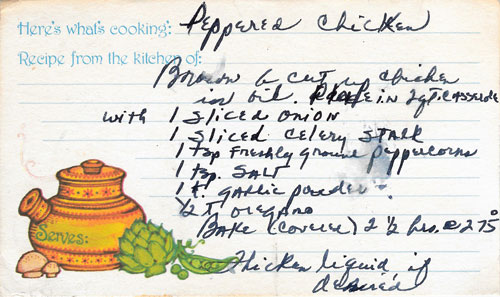 Here's what's cooking: Peppered Chicken
Recipe from the kitchen of:
Brown 6 cut up chicken
in oil. Place in 2 qt. casserole
with 1 sliced onion
1 sliced celery stalk
1 tsp freshly ground peppercorns
1 tsp. salt
1 t. garlic powder
1/2 T oregano
Bake (covered) 2 1/2 hrs. @ 275°
Thicken liquid if
desired
Serves: